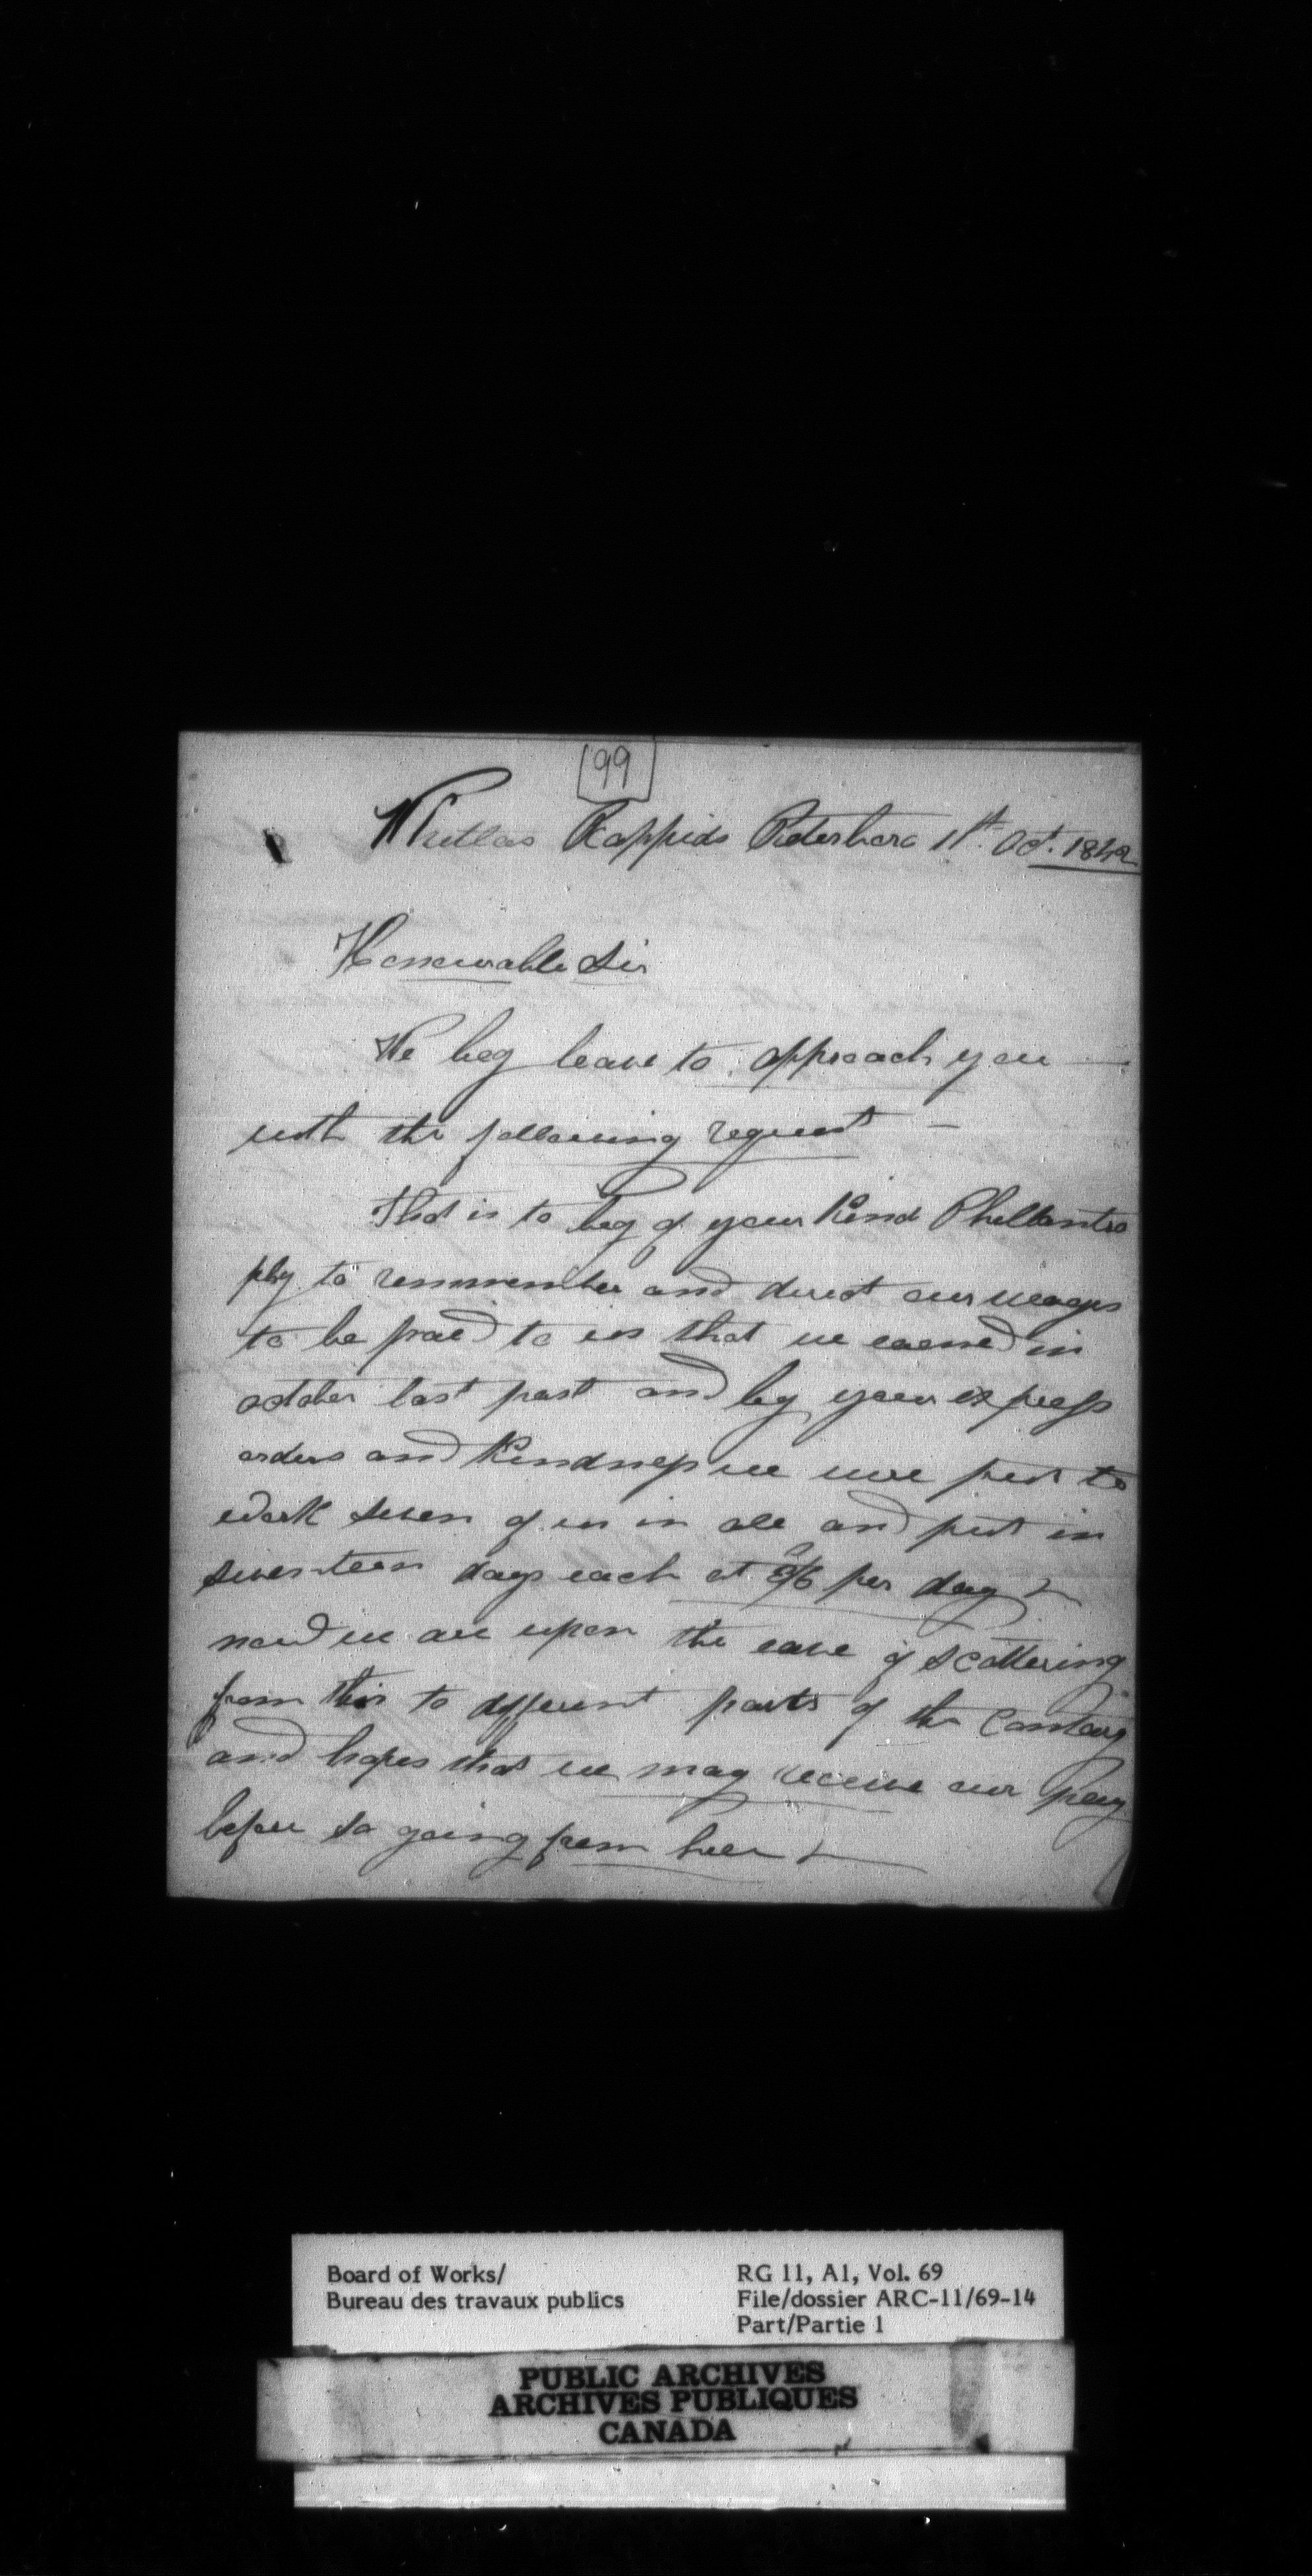 99
Whitlas Rappids Peterboro 11th Oct. 1842
Honourable Sir
We beg leave to approach you
with the following request —
That is to beg of your kind Phillantro
phy to remmember and direct our wages
to be paid to us that we earned in
october last past and by your express
orders and kindness we were put to
work seven of us in all and put in
seventeen days each at per day
now we are upon the eave of scattering
from this to different parts of the Contary
and hopes that we may receive our pay
before so going from heer
Board of Works/
Bureau des travaux publics
RG 11, A1, Vol. 69
File/dossier ARC-11/69-14
Part/Partie 1
PUBLIC ARCHIVES
ARCHIVES PUBLIQUES
CANADA